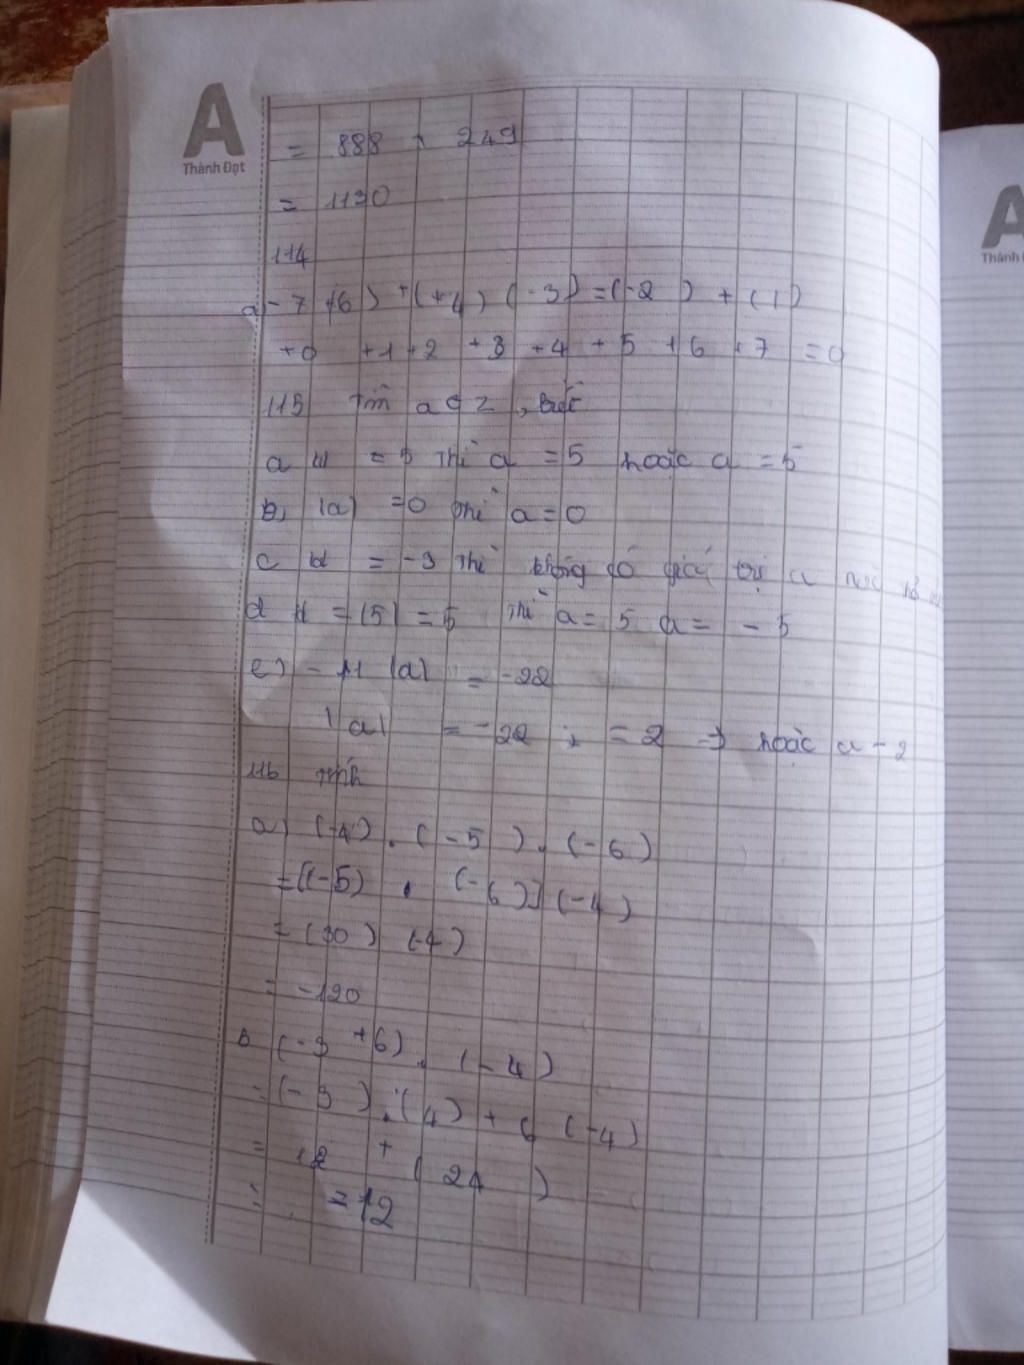 A
Thành Đạt
= 888 + 249
= 1130
114
a) - 7 +6) + (+4) (-3) = (-2) + (1)
+0 +1 +2 +3 +4 +5 +6 +7 = 0
115 Tìm a ∈ Z, biết
a = 5 thì a = 5 hoặc a = 5
b, |a| = 0 thì a = 0
c = -3 thì không có giá trị a nào
d = |5| = 5 thì a = 5 a = - 5
e) - 11 |a| = -22
|a| = -22 : = 2 → hoặc a - 2
116 tính
a) (-4) . (-5) . (-6)
= [(-5) . (-6)] (-4)
= (30) (-4)
= -120
b (-3 +6) . (-4)
= (-3) . (4) + 6 (-4)
= 12 + (24)
= = 12
A
Thành